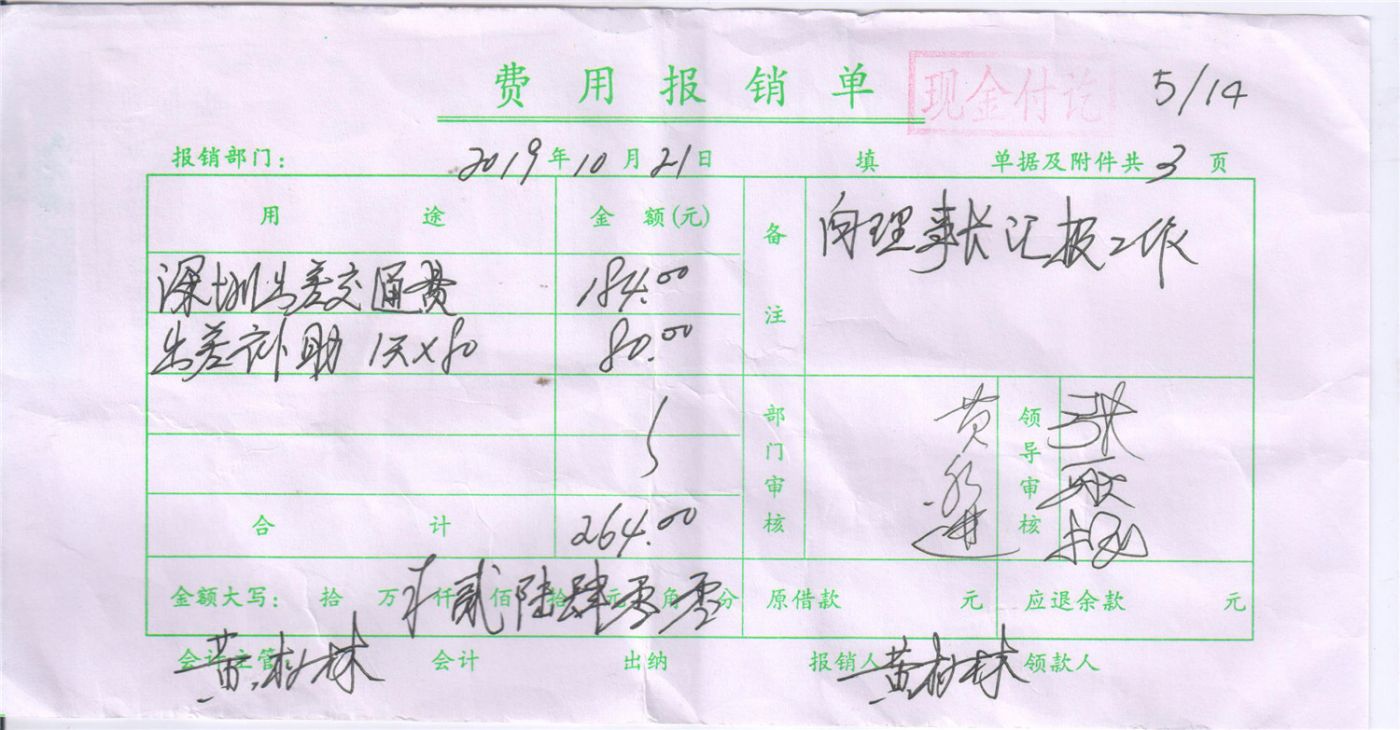 费用报销单 现金付讫 5/14
报销部门： 2019年10月21日 填 单据及附件共3页
用途 金额(元) 备注 向理事长汇报工作
深圳出差交通费 184.00
出差补助 1天×80 80.00
部门审核 黄 进 领导审核
合计 264.00
金额大写： 拾 万 仟贰佰陆拾肆元零角零分 原借款 元 应退余款 元
会计主管 黄树林 会计 出纳 报销人 黄树林 领款人